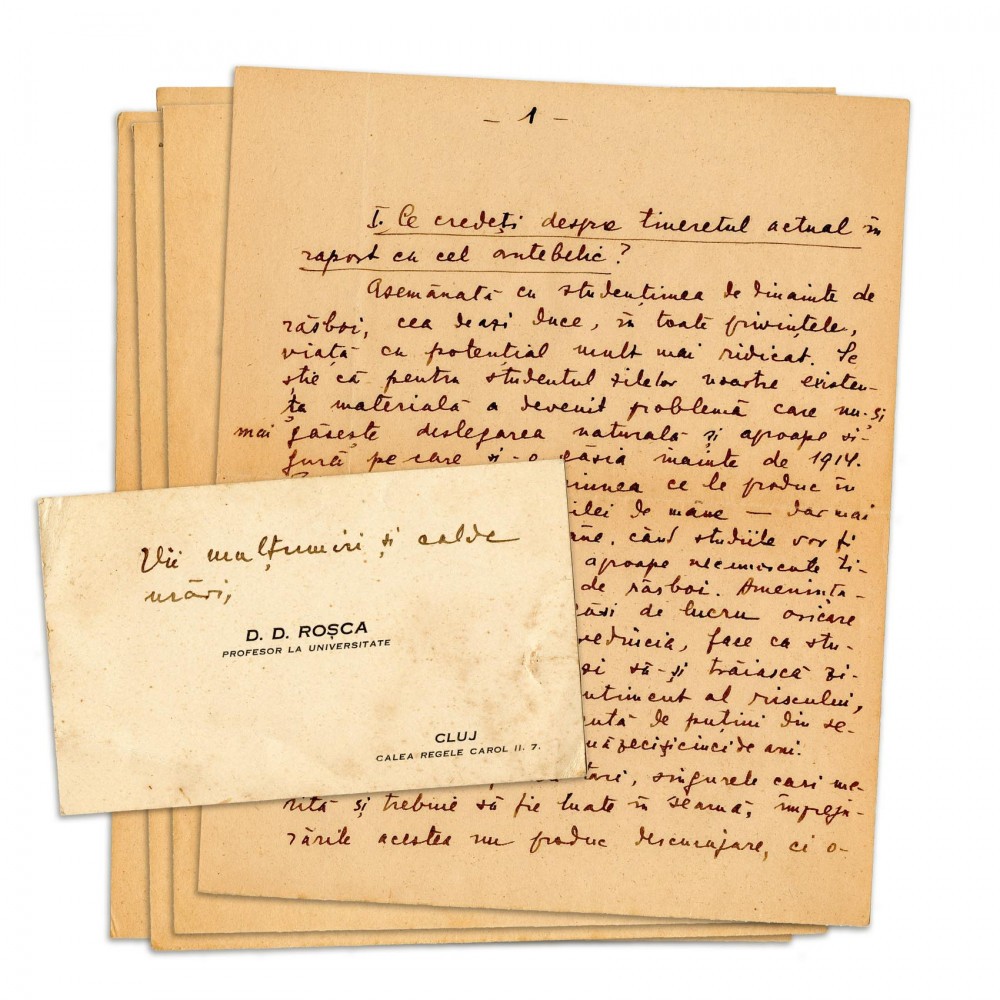 - 1 -
I. Ce credeți despre tineretul actual în
raport cu cel antebelic?
Asemănată cu studențimea de dinainte de
răsboi, cea deași duce, în toate privințele,
viață cu potențial mult mai ridicat. Se
știe că pentru studentul zilelor noastre existen-
ța materială a devenit problemă care nu-și
mai găsește deslegarea naturală și aproape si-
gură pe care și-o găsia înainte de 1914.
iunea ce le produc în
ilei de mâne — dar mai
âne, când studiile vor fi
aproape necunoscute ti-
de răsboi. Amenința-
găsi de lucru oricare
vrednicia, face ca stu-
și să-și trăiască zi-
ntiment al riscului,
ută de puțini din se-
uăzeci și cinci de ani.
tari, singurele cari me-
rită și trebuie să fie luate în seamă, împreju-
rările acestea nu produc descurajare, ci o-
Vii mulțumiri și calde
urări,
D. D. ROȘCA
PROFESOR LA UNIVERSITATE
CLUJ
CALEA REGELE CAROL II. 7.